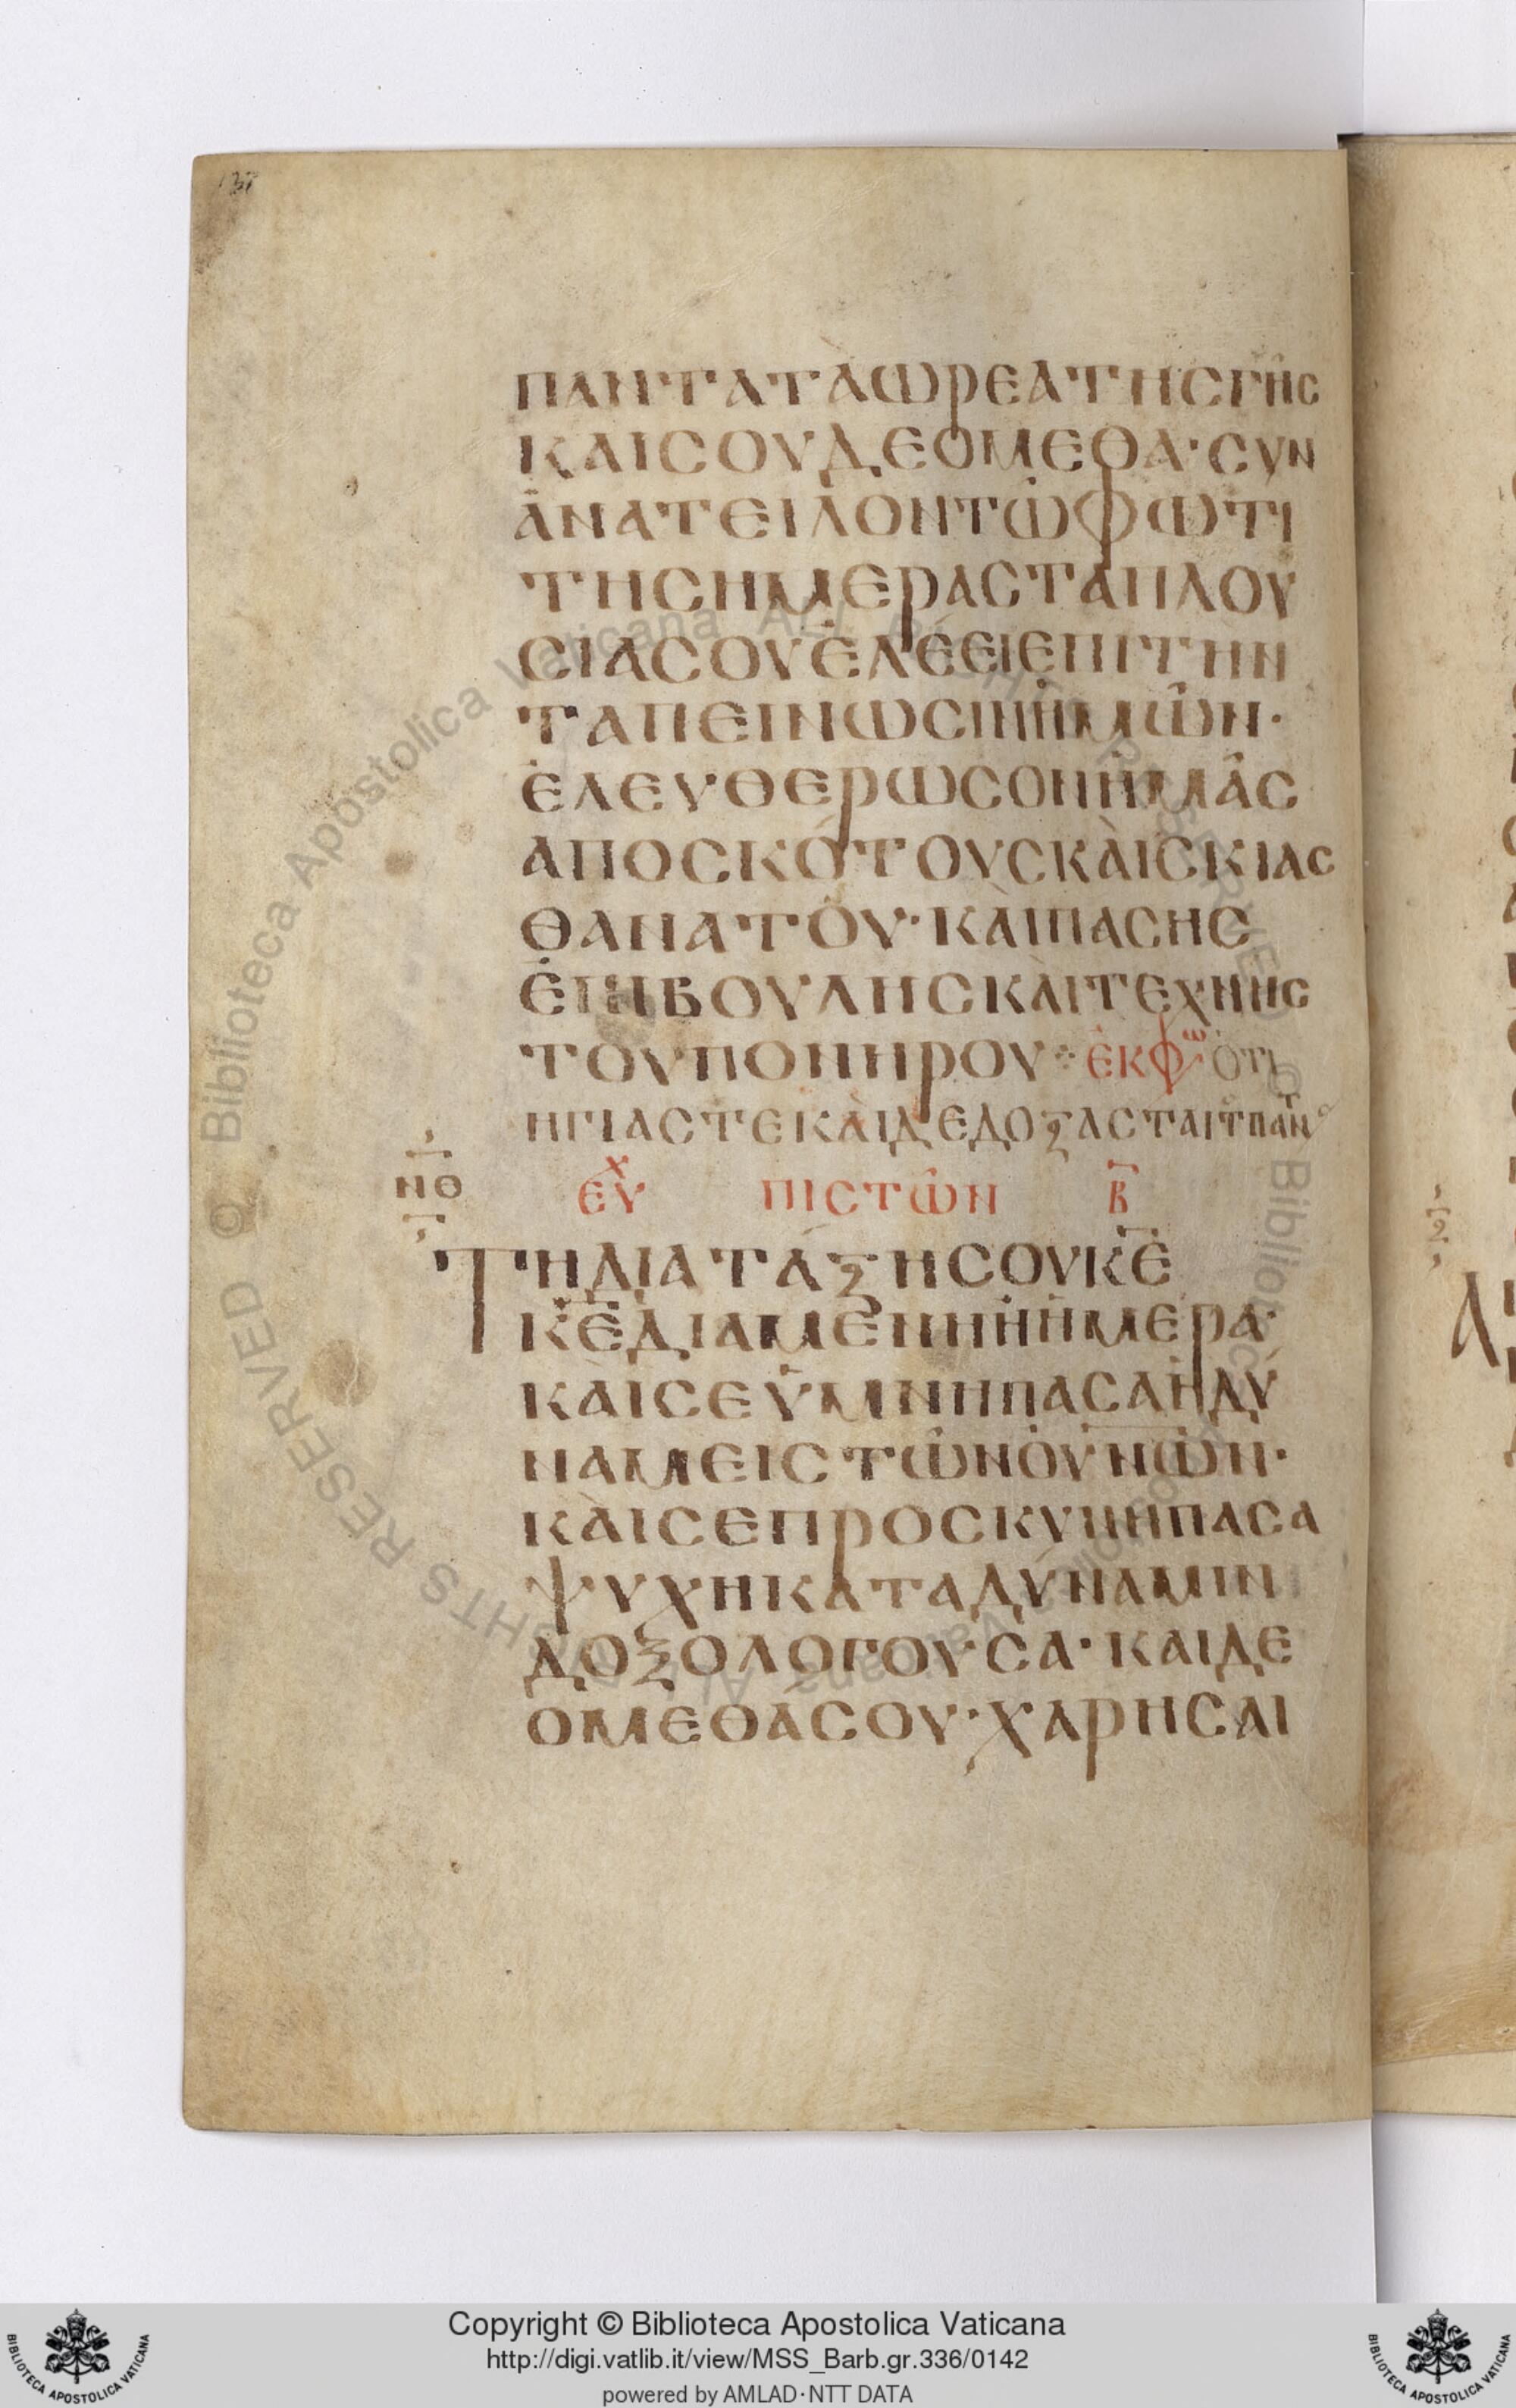 137
ΠΑΝΤΑΤᾺΩΡΕΑΤΗΣΓΗ̂Σ
ΚΑΙΣΟΥΔΕΟΜΕΘΑ· ΣΥΝ
ἈΝΑΤΕΙΛΟΝΤΩ̇ΦΩΤΙ
ΤΗΣΗΜΕΡΑΣΤΑΠΛΟΥ
ΣΙΑΣΟΥἘΛΈΕΙΕΠΙΤΗΝ
ΤΑΠΕΙΝΩΣΙΝΗ̇ΜΩ̂Ν·
ἘΛΕΥΘΕΡΩΣΟΝΗ̇ΜΑ̂Σ
ΑΠΟΣΚΌΤΟΥΣΚᾺΙΣΚΙΑΣ
ΘΑΝΑΤΟΥ· ΚᾺΙΠΑΣΗΣ
ἘΠΙΒΟΥΛΗΣΚᾺΙΤΕΧΝΗΣ
ΤΟΥΠΟΝΗΡΟΥ ⁘ ἘΚΦΩ ὉΤΙ
ΗΓΙΑΣΤΕΚᾺΙΔΕΔΟΞΑΣΤΑΙΤΠΑΝ
ΝΘ
ΕΥΧ ΠΙΣΤΩ̂Ν Β̅
ΤΗΔΙΑΤΆΞΗΣΟΥΚ̅Ε̅
Κ̅Ε̅ΔΙΑΜΕΝΗΗ̇Η̇ΜΕΡΑ·
ΚᾺΙΣΕΥ̇ΜΝΗΠΑΣΑΗ̇ΔΎ
ΝΑΜΕΙΣΤΩ̇ΝΟ̇Υ̅Ν̅Ω̅Ν·
ΚᾺΙΣΕΠΡΟΣΚΥΝΗΠΑΣΑ
ΨΥΧΗΚΑΤΑΔΎΝΑΜΙΝ
ΔΟΞΟΛΟΓΟΥΣΑ· ΚΑΙΔΕ
ΟΜΕΘΆΣΟΥ· ΧΑΡΗΣΑΙ
© Biblioteca Apostolica Vaticana ALL RIGHTS RESERVED
Copyright © Biblioteca Apostolica Vaticana
http://digi.vatlib.it/view/MSS_Barb.gr.336/0142
powered by AMLAD·NTT DATA
BIBLIOTECA APOSTOLICA VATICANA
BIBLIOTECA APOSTOLICA VATICANA